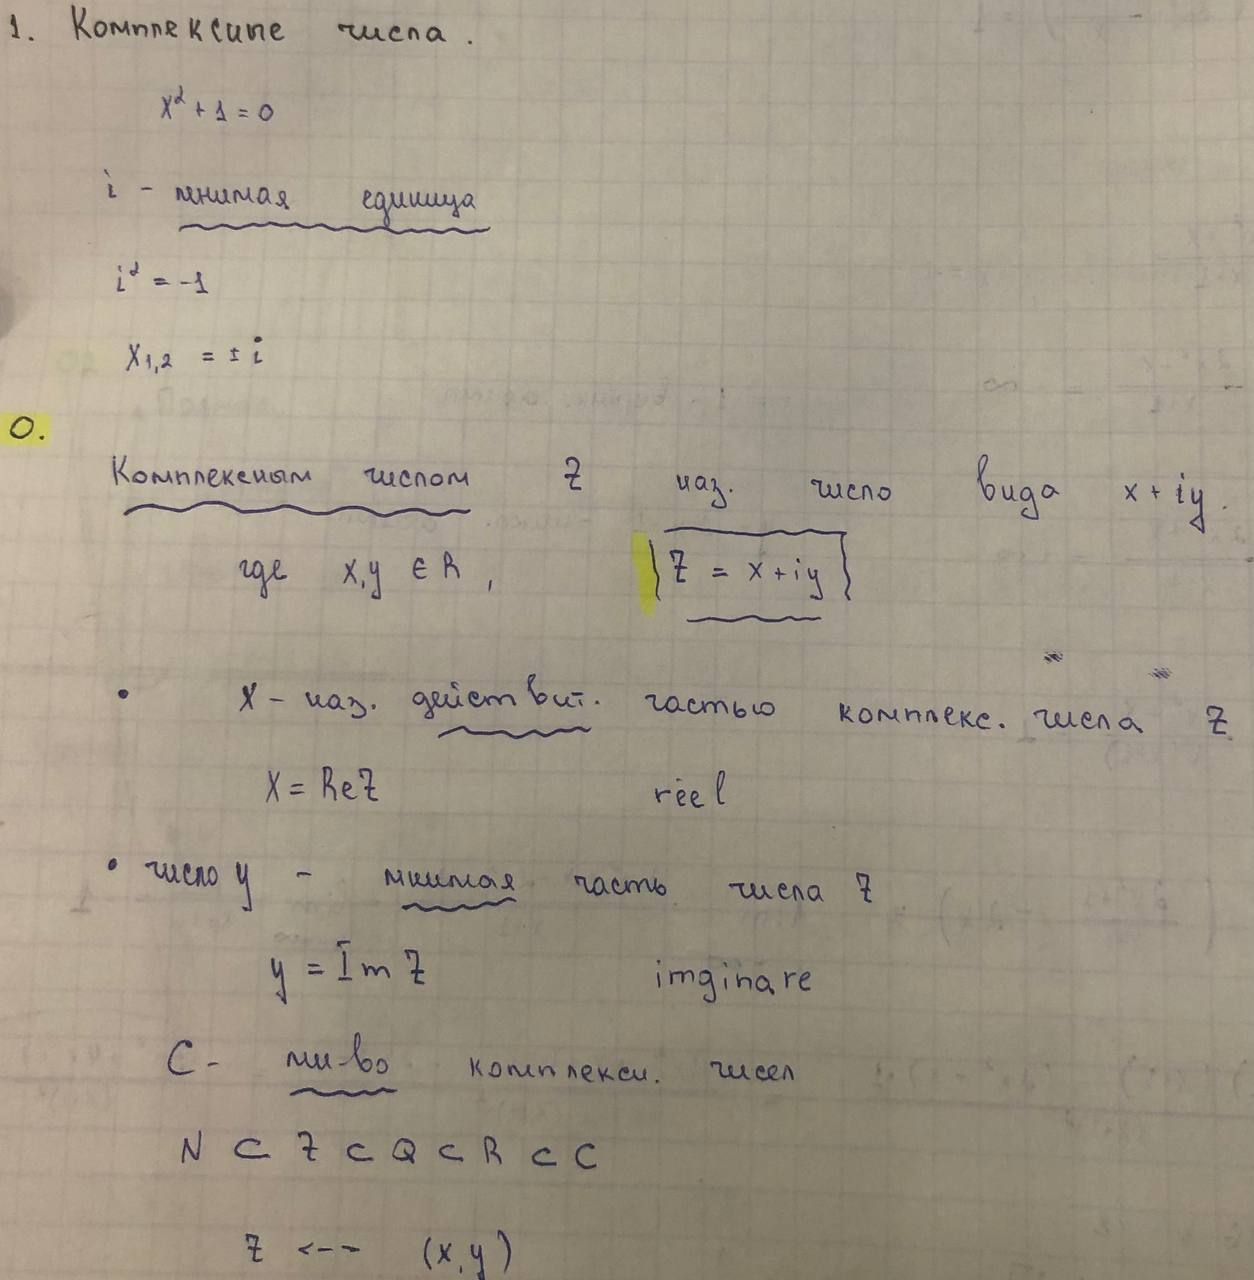 1. Комплексные числа.
x² + 1 = 0
i - мнимая единица
i² = -1
x₁,₂ = ± i
О.
Комплексным числом Z наз. число вида x + iy.
где x, y ∈ R, Z = x + iy
• X - наз. действит. частью комплекс. числа Z
X = Re Z réel
• число y - мнимая часть числа Z
y = Im Z imginare
C - мн-во комплексн. чисел
N ⊂ Z ⊂ Q ⊂ R ⊂ C
Z <-- (x, y)